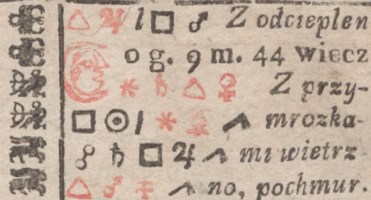 △ ♃ / □ ♂ Z odcieplen
o g. 9 m. 44 wiecz
✶ ♄ △ ♀ Z przy-
□ ☉ / ✶ mrozka-
☍ ♄ □ ♃ mi wietrz
△ ♂ no, pochmur.